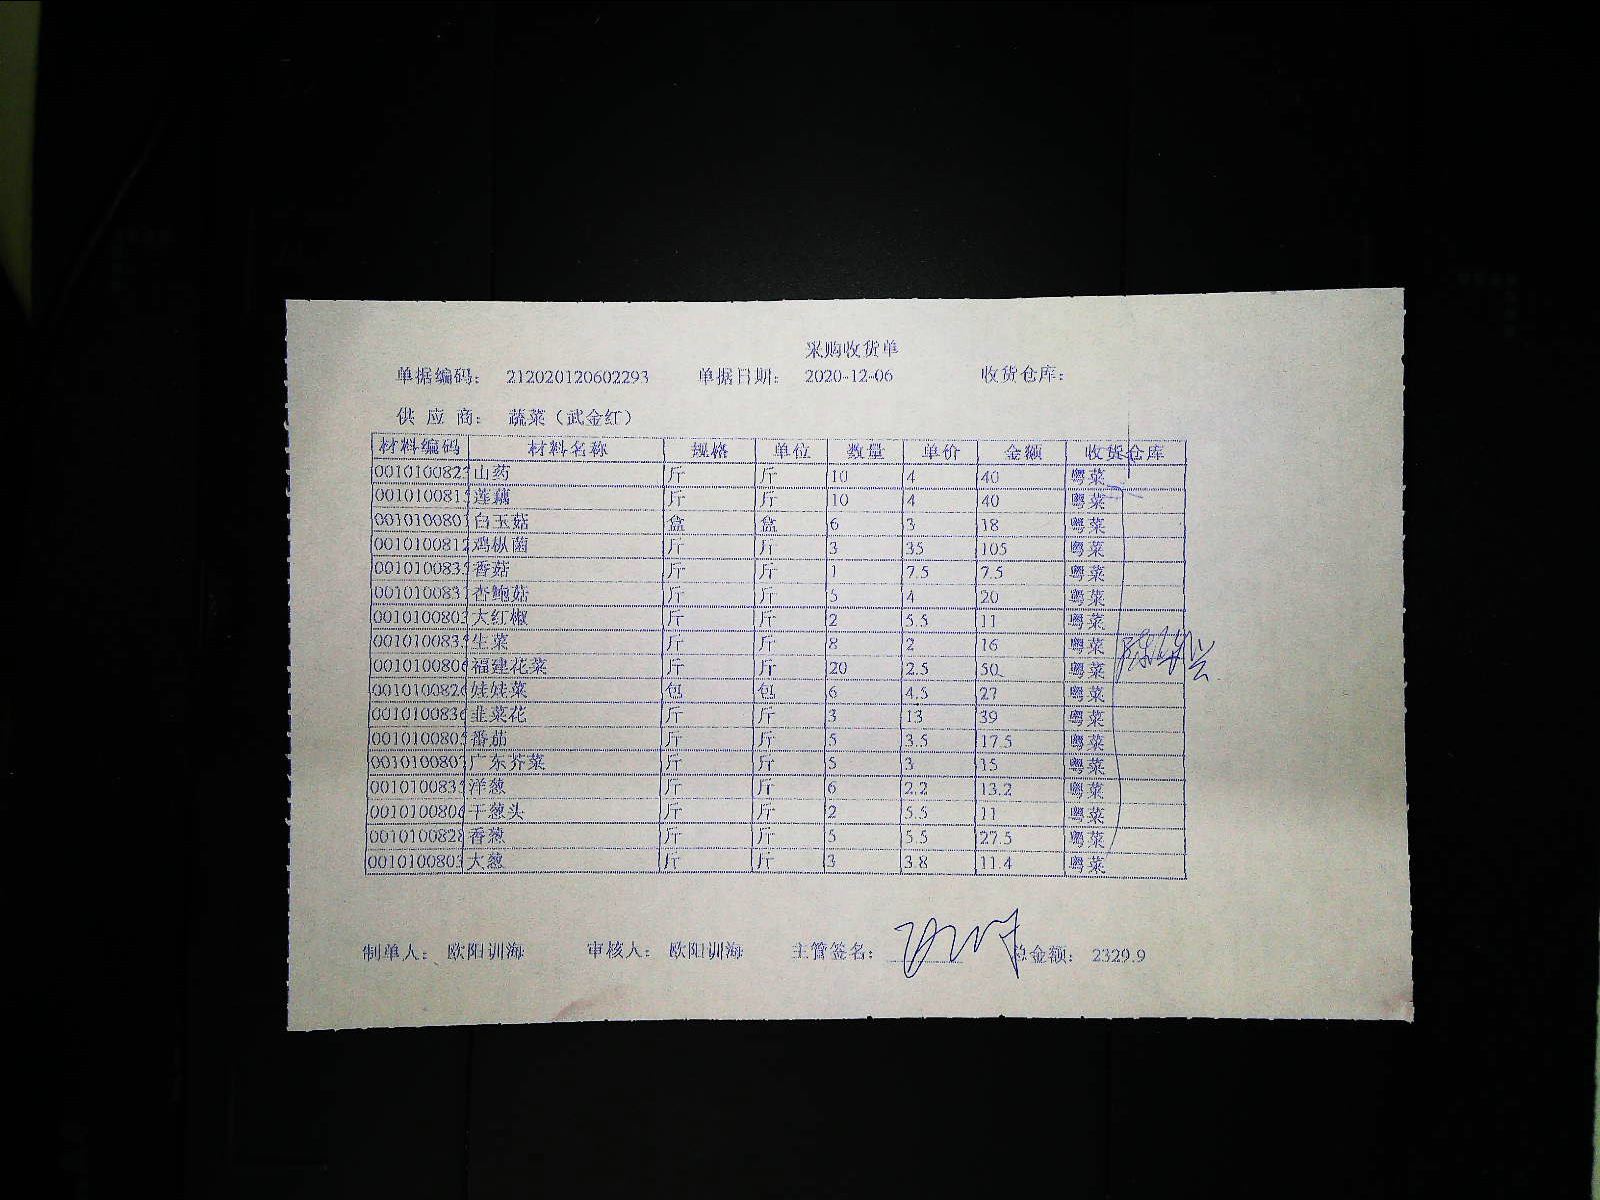 采购收货单
单据编码： 212020120602293 单据日期： 2020-12-06 收货仓库：
供 应 商： 蔬菜（武金红）
材料编码 材料名称 规格 单位 数量 单价 金额 收货仓库
0010100823 山药 斤 斤 10 4 40 粤菜
0010100815 莲藕 斤 斤 10 4 40 粤菜
001010080 白玉菇 盒 盒 6 3 18 粤菜
0010100812 鸡枞菌 斤 斤 3 35 105 粤菜
001010083 香菇 斤 斤 1 7.5 7.5 粤菜
001010083 杏鲍菇 斤 斤 5 4 20 粤菜
001010080 大红椒 斤 斤 2 5.5 11 粤菜
001010083 生菜 斤 斤 8 2 16 粤菜
001010080 福建花菜 斤 斤 20 2.5 50 粤菜
001010082 娃娃菜 包 包 6 4.5 27 粤菜
001010083 韭菜花 斤 斤 3 13 39 粤菜
001010080 番茄 斤 斤 5 3.5 17.5 粤菜
001010080 广东芥菜 斤 斤 5 3 15 粤菜
001010083 洋葱 斤 斤 6 2.2 13.2 粤菜
001010080 干葱头 斤 斤 2 5.5 11 粤菜
0010100828 香葱 斤 斤 5 5.5 27.5 粤菜
0010100803 大葱 斤 斤 3 3.8 11.4 粤菜
制单人： 欧阳训海 审核人： 欧阳训海 主管签名： 总金额： 2329.9